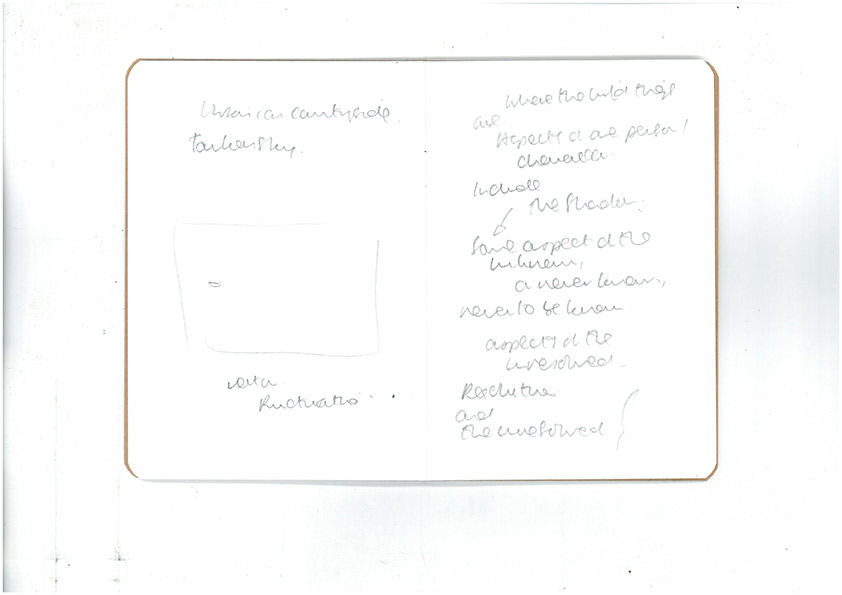 countryside.
Tarkovsky.
water
fluctuatio
Where the wild things
are
Aspects of one person /
character.
Include
the Shadow.
Some aspect of the
unknown,
a never known,
never to be known
aspects of the
unresolved.
and
the unresolved